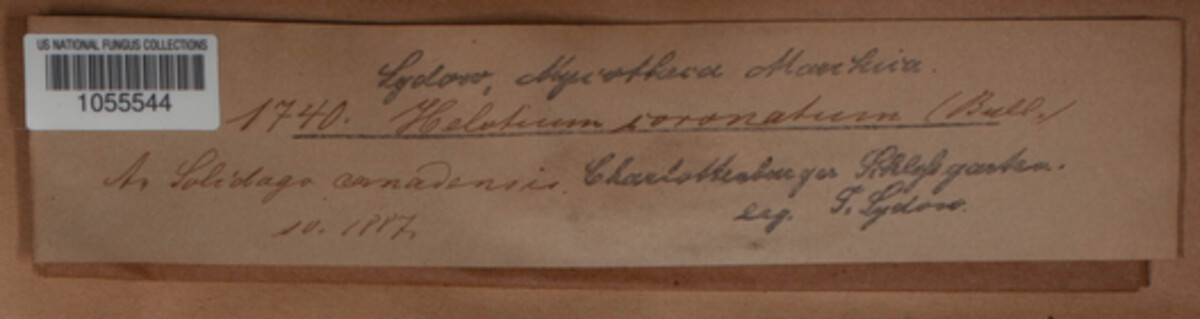 US NATIONAL FUNGUS COLLECTIONS
1055544
Sydow, Mycotheca Marchica.
1740. Helotium coronatum (Bull.)
An Solidago canadensis. Charlottenburger Schloßgarten.
10. 1887. leg. P. Sydow.